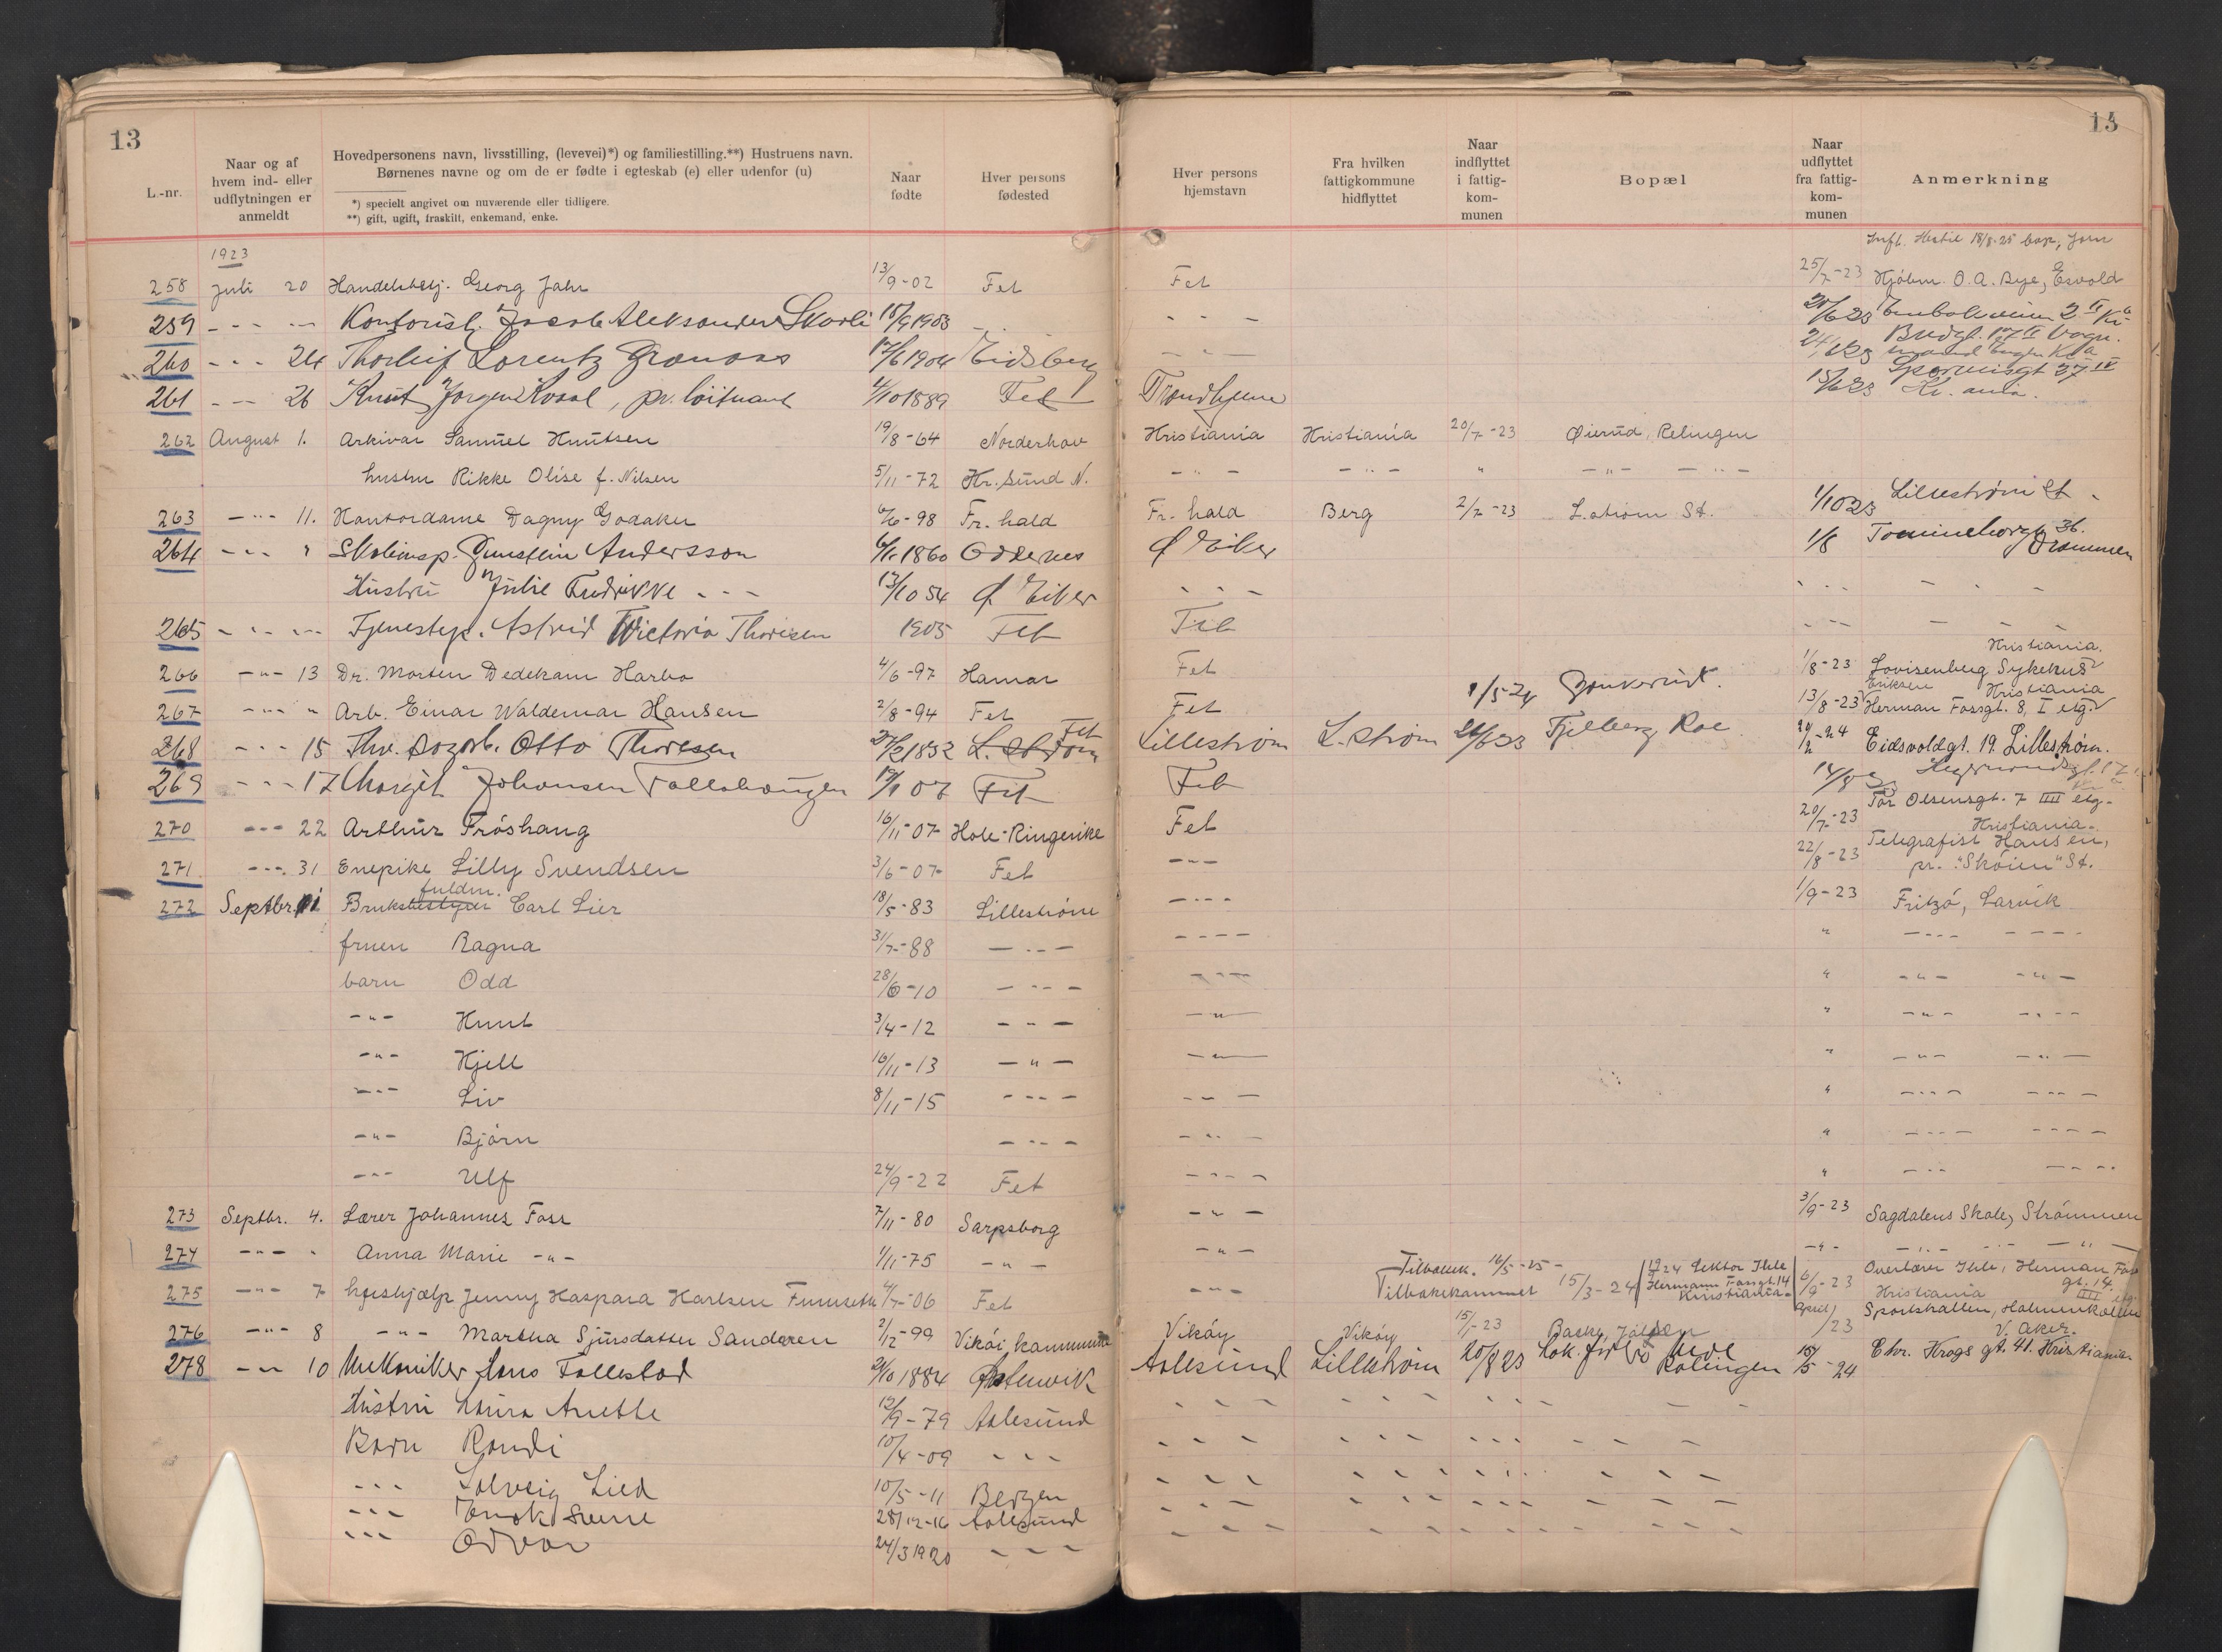 13
15
L.-nr.
Naar og af hvem ind- eller udflytningen er anmeldt
Hovedpersonens navn, livsstilling, (levevei)*) og familiestilling.**) Hustruens navn.
Børnenes navne og om de er fødte i egteskab (e) eller udenfor (u)
*) specielt angivet om nuværende eller tidligere.
**) gift, ugift, fraskilt, enkemand, enke.
Naar fødte
Hver persons fødested
Hver persons hjemstavn
Fra hvilken fattigkommune hidflyttet
Naar indflyttet i fattig-kom-munen
Bopæl
Naar udflyttet fra fattig-kom-munen
Anmerkning
1923
258 Juli 20 Georg Jahr 13/9-02 Fet Fet 25/7-23 O. A. Bye, Esvold
259 - - - Jacob Aleksander Skovli 18/9 1903 - - -
260 - - - 24 Thorleif Lorentz Granaas 1904 Eidsberg - - -
261 - - 26 Knut Jørgen 4/10 1889 Fet Trondhjem
262 August 1. Arkivar Samuel Knutsen 19/8-64 Norderhov Kristiania Kristiania 20/7-23 Øierud, Relingen
hustru Rikke Olise f. Nilsen 5/11-72 Kr. sund N. - " - - " - " - " - - " -
263 - " - 11. Kontordame Dagny Godaker 6/6-98 Fr. hald Fr. hald Berg 2/7-23 L.strøm St. 1/10 23 Lillestrøm St.
264 - - - " Gunstein Andersson 1860 Oddernes Ø Eiker 1/8 36. Drammen
Hustru Julie Fredrikke - - - 13/10 54 Ø Eiker - - - - - - - - -
265 - - - Astrid Victoria Thoresen 1905 Fet Fet - - - - - -
266 - " - 13 Dr. Morten Dedekam Harbo 4/6-97 Hamar Fet 1/8-23 Lovisenberg Sykehus Kristiania.
267 - " - " Arb. Einar Waldemar Hansen 2/8-94 Fet Fet 1/5-24 13/8-23 Eriksen Herman Fossgt. 8, I etg. Kristiania
268 - - - 15 Otto Thoresen L. Strøm Fet Lillestrøm L. strøm Fjelberg Roe 29/2-24 Eidsvoldgt. 19. Lillestrøm.
269 - - - 17 Margit Johansen Tollehaugen 19/1 07 Fet Fet 14/8
270 - - - 22 Arthur Frøshaug 16/11-07 Hole-Ringerike Fet 20/7-23 Tor Olsensgt. 7 III etg. Kristiania.
271 - - - 31 Enepike Lilly Svendsen 3/6-07 Fet - " - 22/8-23 Telegrafist Hansen, pr. "Skøien" St.
272 Septbr. 1 Bruksbestyrer fuldm. Carl Lier 18/5-83 Lillestrøm - " - 1/9-23 Fritzø, Larvik
fruen Ragna 31/7-88 - " - - - - - " - - - - - - - -
barn Odd 28/6-10 - " - - " - " - " - - " -
- " - Knut 3/4-12 - " - - " - " - " - - " -
- " - Kjell 16/11-13 - " - - " - " - " - - " -
- " - Liv 8/11-15 - " - - " - " - " - - " -
- " - Bjørn - " - - " - " - " - - " -
- " - Ulf 24/9-22 Fet - " - " - " - - " -
273 Septbr. 4. Lærer Johannes Foss 7/11-80 Sarpsborg - " - 3/9-23 Sagdalens Skole, Strømmen
274 - " - " Anna Marie - " - 1/11-75 - " - - " - - " - - " - - " -
275 - " - 7 Jenny Kaspara Karlsen Furuseth 4/7-06 Fet - " - Tilbakek. 16/5-25- Tilbakekommet 15/3-24 1924 Lektor Ihle Hermann Fossgt. 14 Kristiania 6/9-23 Overlærer Ihle, Herman Foss gt. 14 III etg. Kristiania
276 - " - 8 - " - Martha Sjursdatter Sandven 2/12-99 Vikøi kommune Vikøy Vikøy 15/1-23 April /23 Sportshallen, Holmenkollen V. Aker.
278 - " - 10 Mekaniker Hans Follestad 1884 Aalesund Lillestrøm 20/8 23 Rælingen 15/5-24 Chr. Krogs gt. 41. Kristiania
Hustru Laura Anette 12/9-79 Aalesund - - - - - - - - - - -
Barn Randi 10/4-09 - - - - - - - - - - - - - - -
- - - Solveig Lied 10/5-11 Bergen - - - - - - - - - - - -
- - - Enok Sverre 28/12-16 Aalesund - - - - - - - - - - - -
- - - Odvar 24/3 1920 - - - - - - - - - - - - - - -